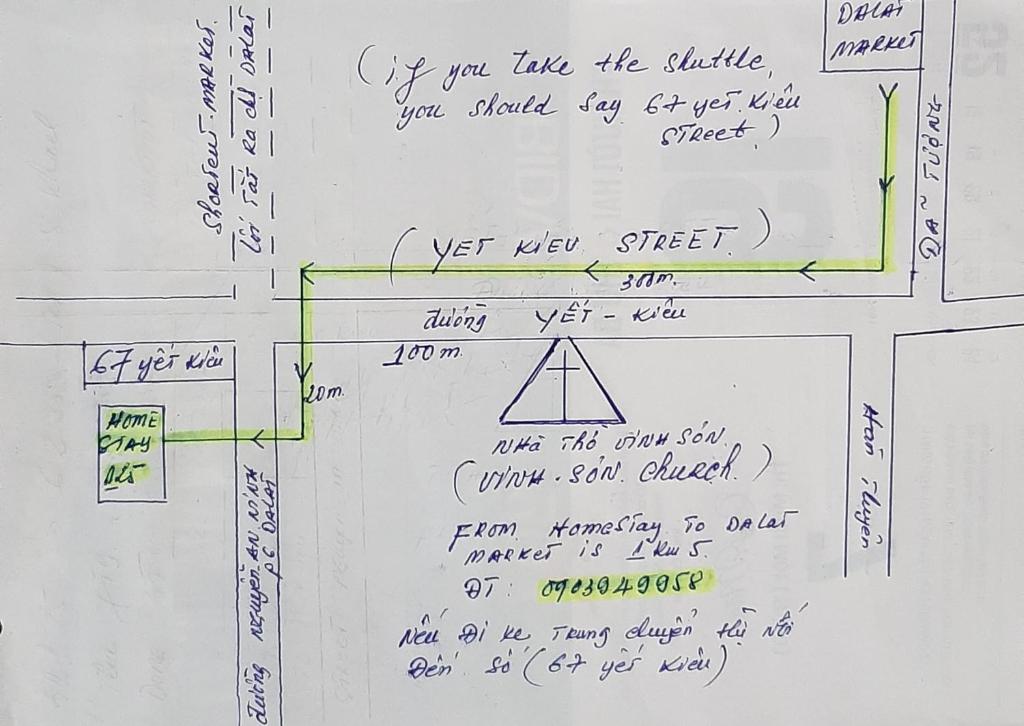 DALAT
MARKET
(if you Take the shuttle,
you should say 67 yết. Kiêu
STreet.)
Shortcut. MARKET.
Lối TắT Ra chợ DALAT
DÃ ~ TƯỢNG
(YET KIEU STREET.)
300m.
đường YẾT - Kiêu
100m.
67 yết Kiêu
20m.
HOME
STAY
NHà THờ VINH SƠN.
(VINH-SƠN. Church.)
Hàn Thuyên
đường NGuyễN. AN. NINH
P6 DALAT
FROM HomeStay To DALAT
MARKET is 1 Km 5.
ĐT: 0903949958
Nếu Đi xe Trung chuyển thì Nói
Đến Số (67 yết Kiêu)